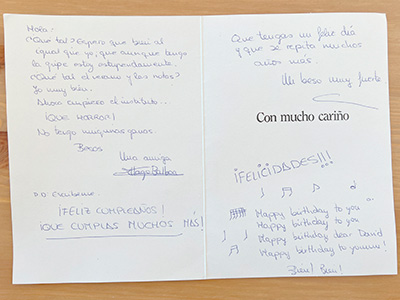 Hola:
¿Qué tal? Espero que bien al
igual que yo, que aunque tengo
la gripe estoy estupendamente.
¿Qué tal el verano y las notas?
Yo muy bien.
Ahora empieza el instituto...
¡QUE HORROR!
No tengo muchas ganas.
Besos
Una amiga
P.D. Escríbeme.
¡FELIZ CUMPLEAÑOS!
¡QUE CUMPLAS MUCHOS MÁS!
Que tengas un feliz día
y que se repita muchos
años más.
Un beso muy fuerte
Con mucho cariño
¡FELICIDADES!!!
Happy birthday to you
Happy birthday to you
Happy birthday, dear David
Happy birthday to youuuu!